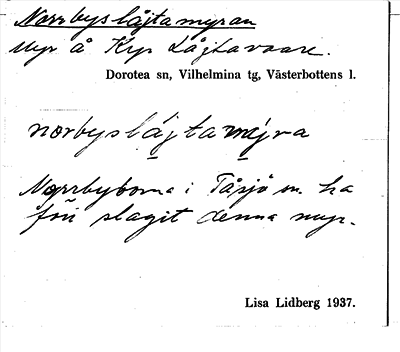 Norrbyslåjtamyran
Myr å Kyr Låjtavaare.
Dorotea sn, Vilhelmina tg, Västerbottens l.
norbyslåjtamýra
Norrbyborna i Tåsjö sn. ha
förr slagit denna myr.
Lisa Lidberg 1937.